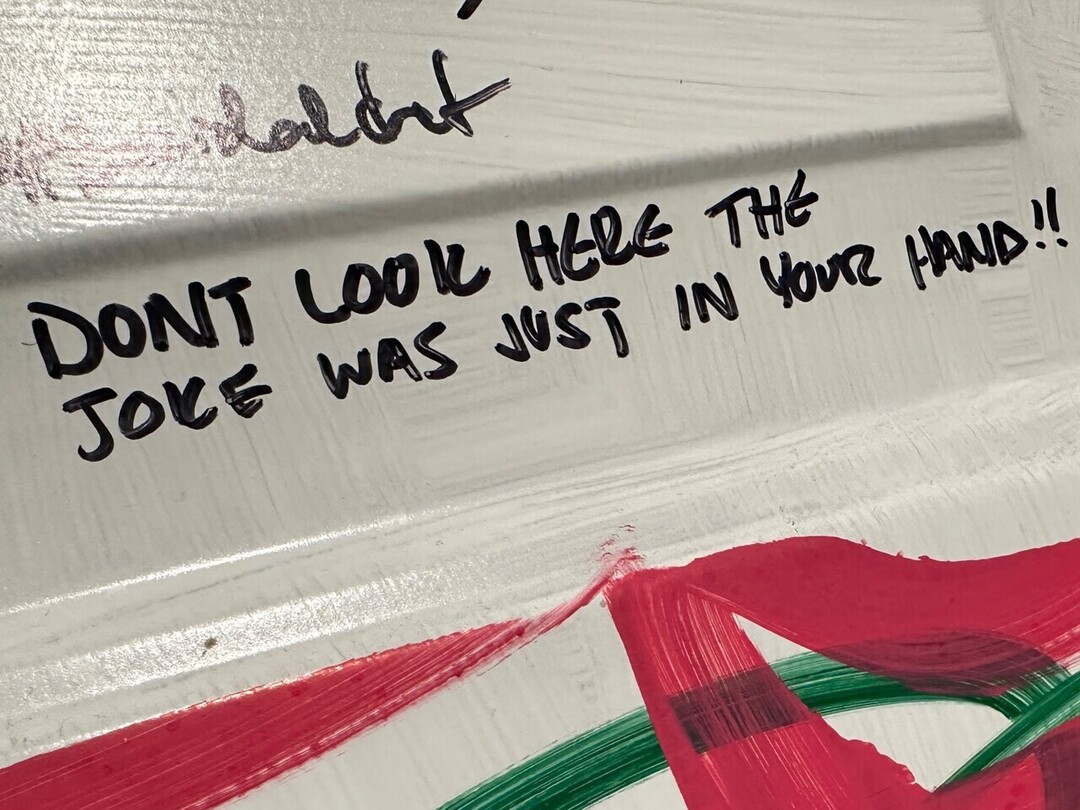 DONT LOOK HERE THE
JOKE WAS JUST IN YOUR HAND!!